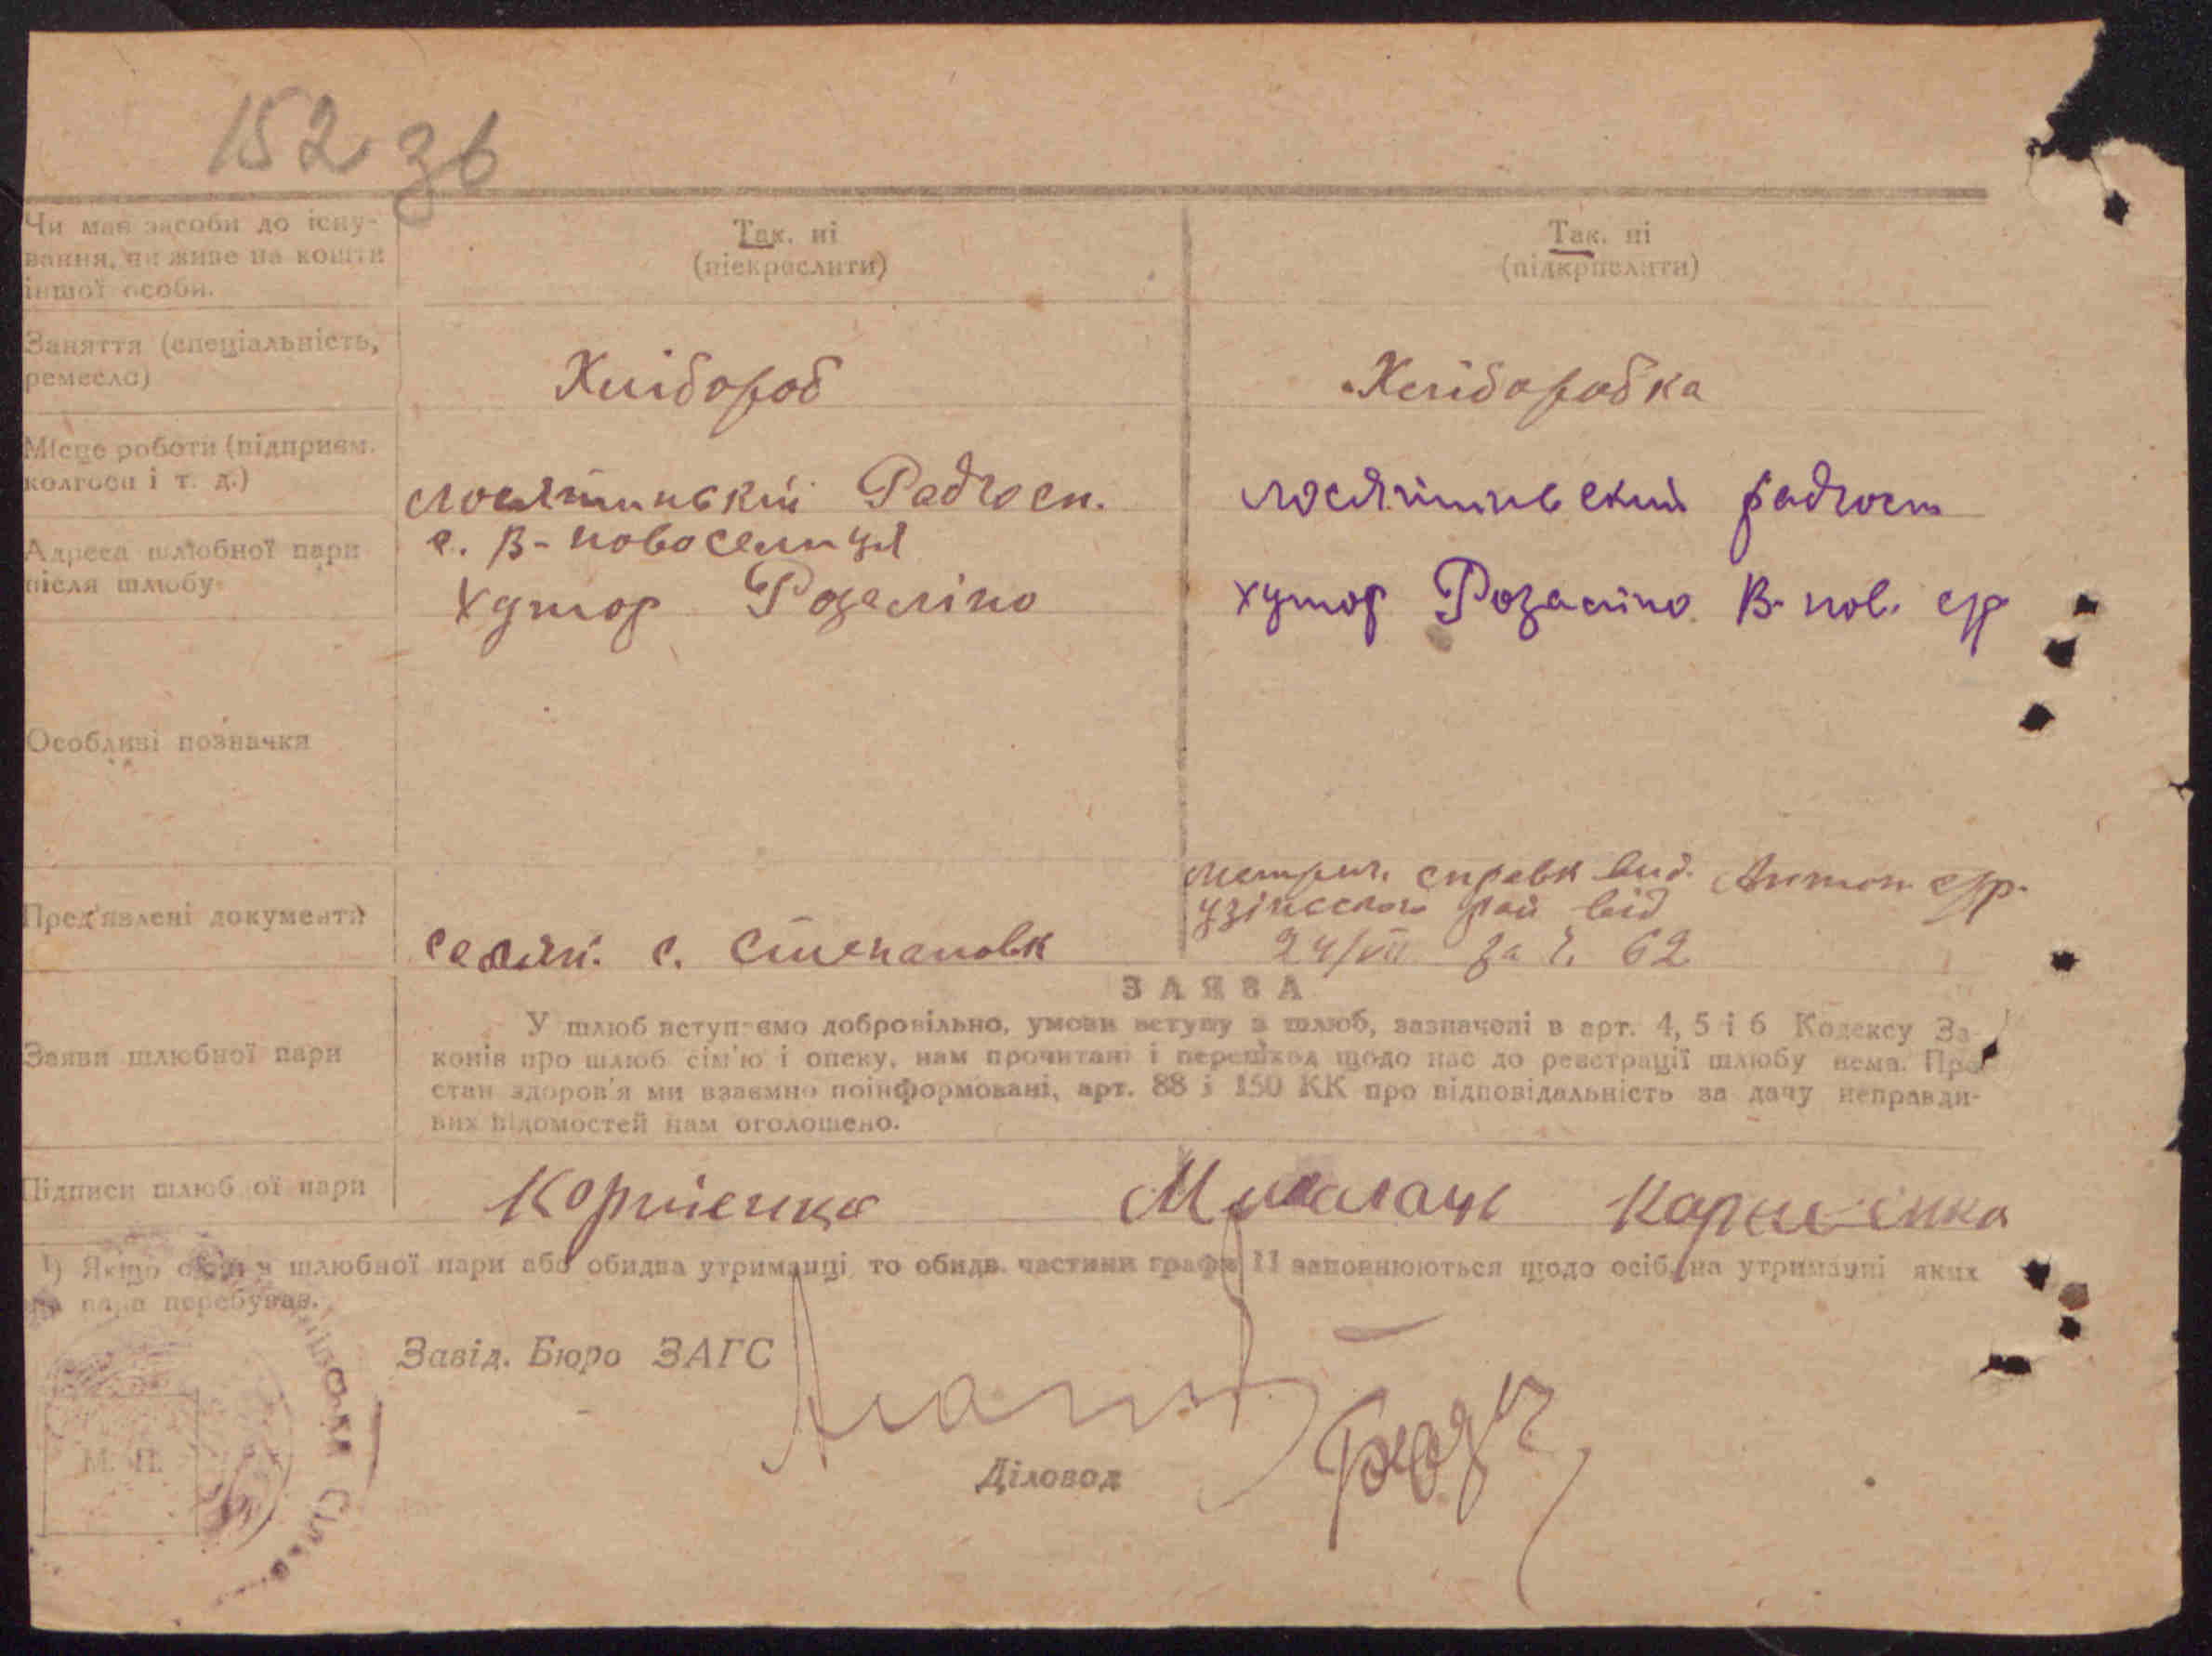 152 зв
Чи має засоби до існу-
вання, чи живе на кошти
іншої особи.
Так, ні
(піекраслити)
Так, ні
(підкрпслити)
Заняття (спеціальність,
ремесло)
Хлібороб
Хліборобка
Місце роботи (підприєм.
колгосп і т. д.)
Лосятинський Радгосп.
лосятинвский радгосп
Адреса шлюбної пари
після шлюбу
с. В-новоселиця
хутор Розаліно
хутор Розаліно В-нов. с/р
Особливі позначки
Пред'явлені документи
с. Степановк
метрич. справк вид. Антон. с/р.
узінсского рай від
24/VII за ч. 62
ЗАЯВА
Заяви шлюбної пари
У шлюб вступаємо добровільно, умови вступу в шлюб, зазначені в арт. 4, 5 і 6 Кодексу За-
конів про шлюб сім'ю і опеку, нам прочитані і перешкод щодо нас до реєстрації шлюбу нема. Про
стан здоров'я ми взаємно поінформовані, арт. 88 і 150 КК про відповідальність за дачу неправди-
вих відомостей нам оголошено.
Підписи шлюб ої пари
Корнієнко
Корнієнко
1) Якщо один з шлюбної пари або обидва утриманці, то обидв. частини графи 11 заповнюються щодо осіб, на утриманні яких
ця пара перебуває.
Завід. Бюро ЗАГС
М. П.
Діловод